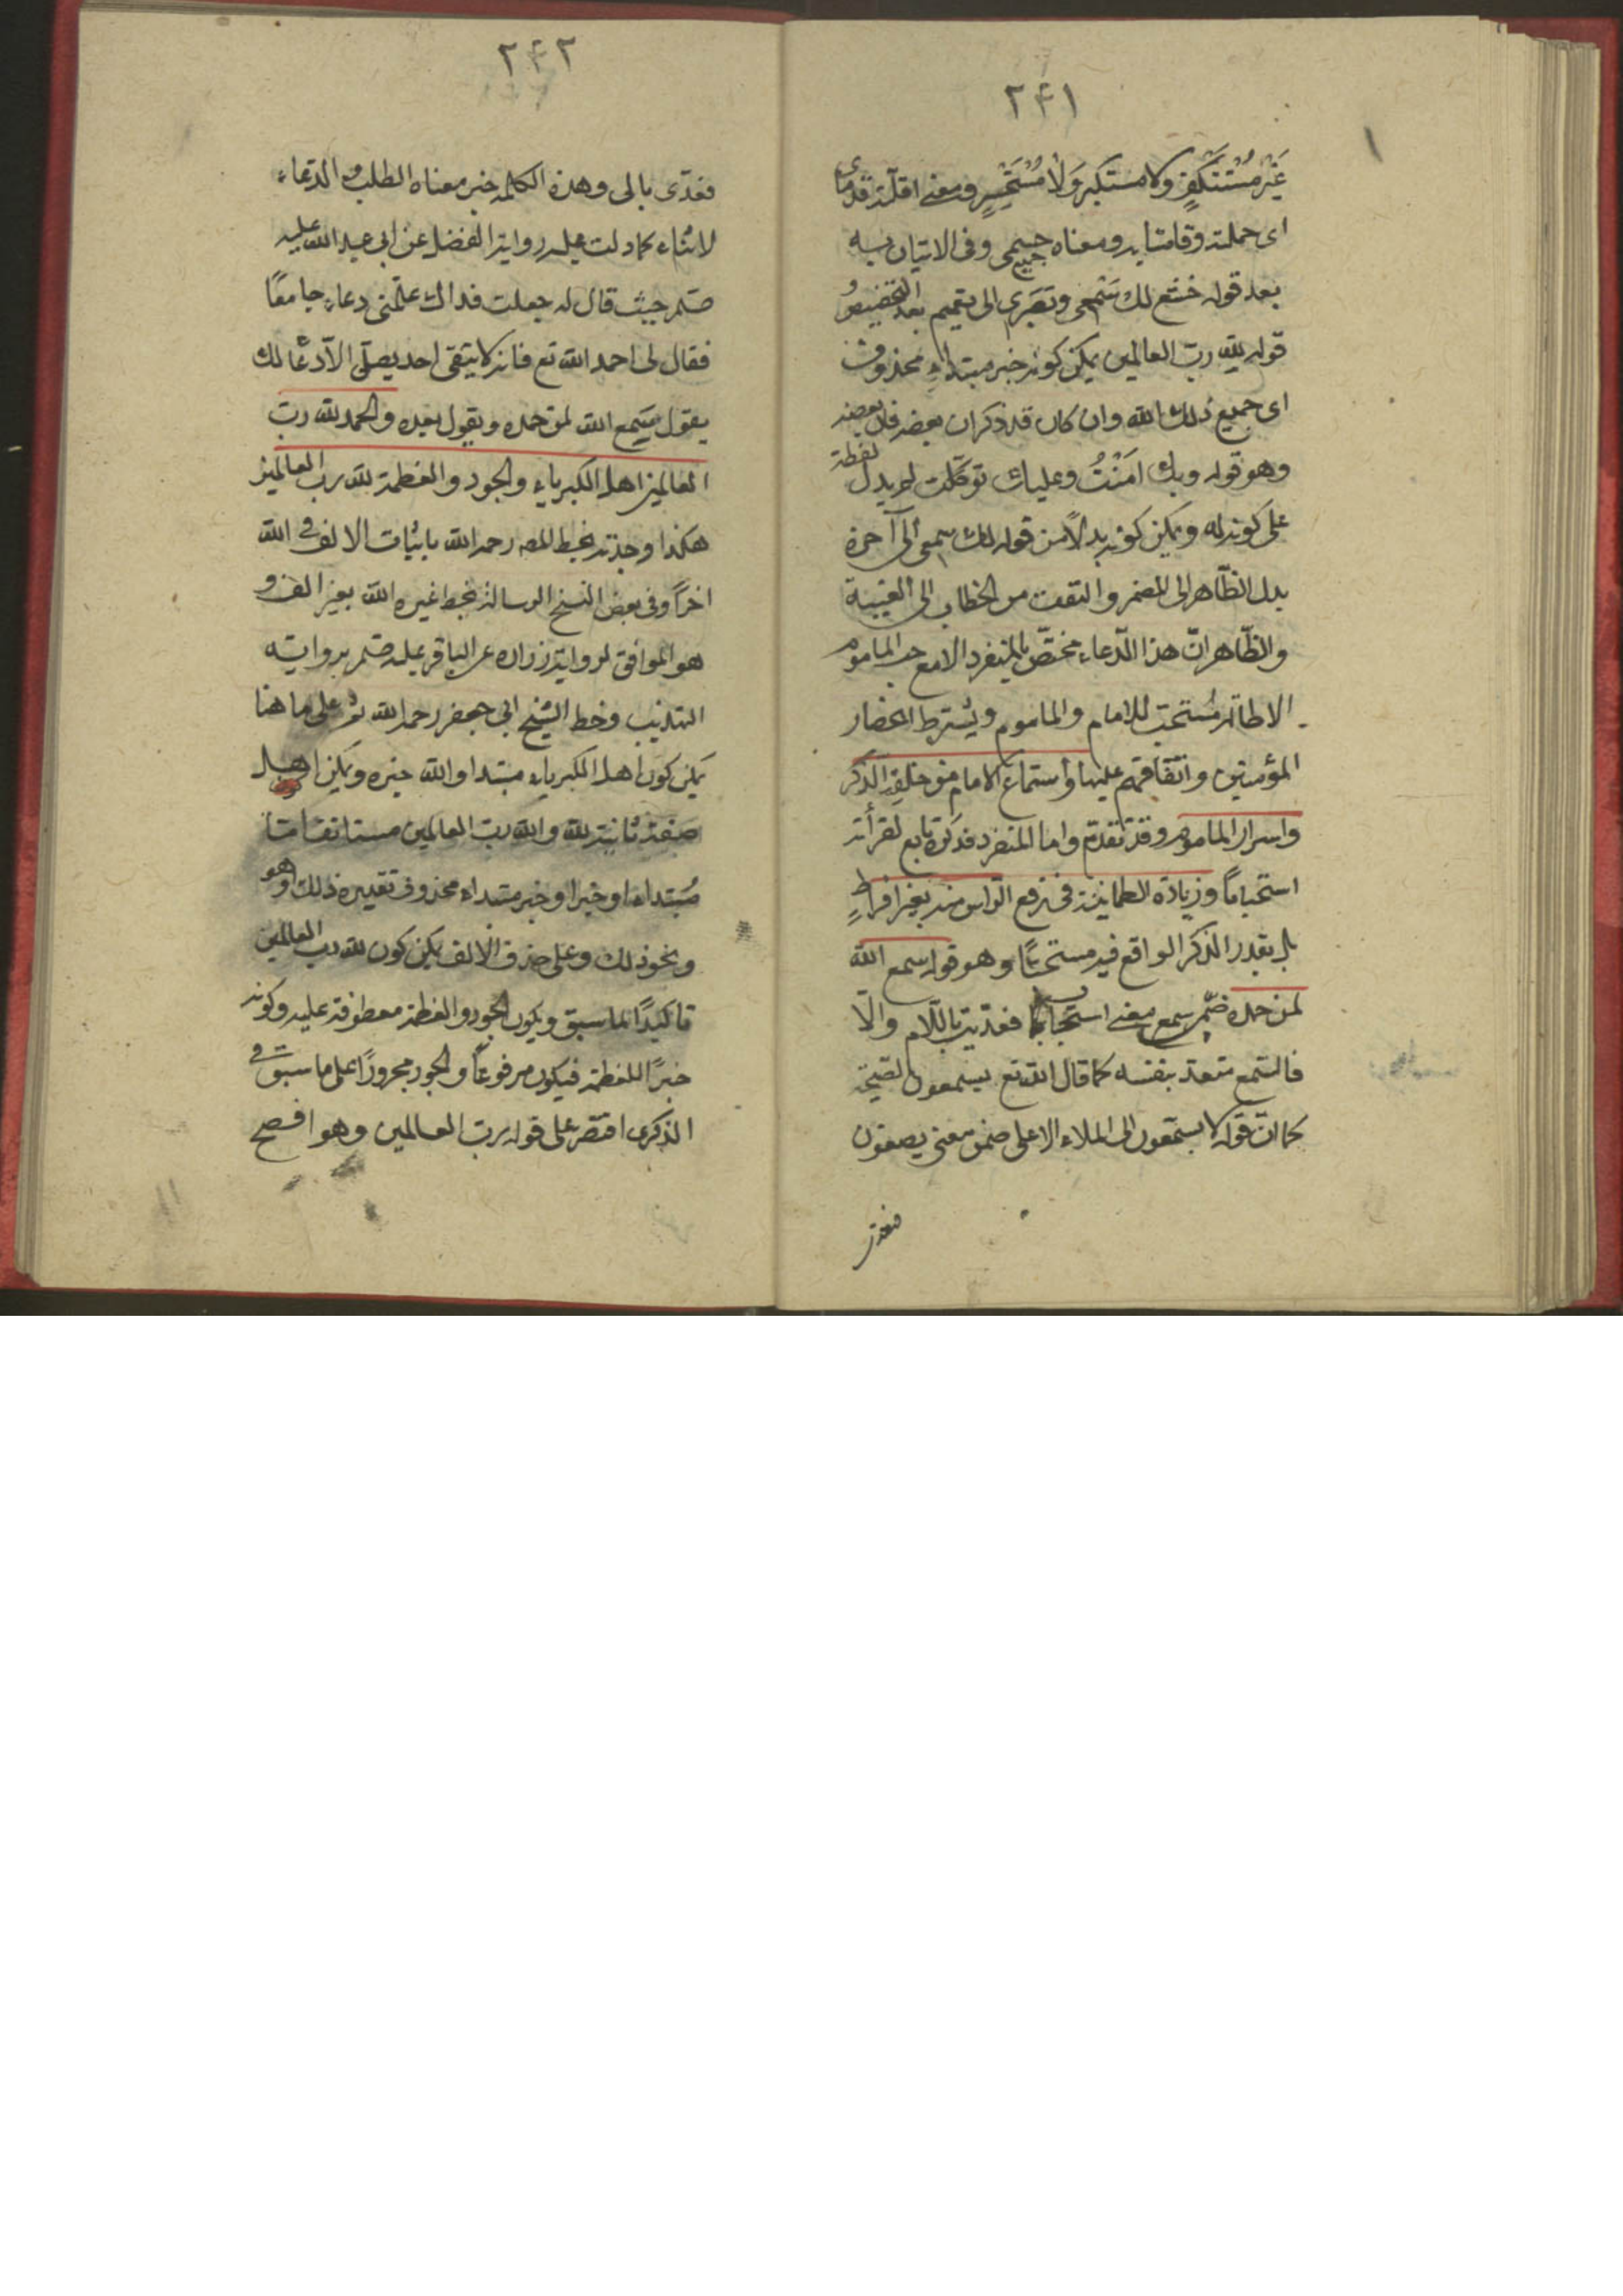 ٢٤١
غَيْرَ مُسْتَنْكِفٍ ولا مستكبر وَلَا مُسْتَحْسِرٍ ومعنى اقلّته قدماى
اى حملته وقامتا به ومعناه جميعى وفى الاتيان به
بعد قوله خشع لك سَمْعى وبَصَرى الى تعميم بعد التخصيص
قوله للّه ربّ العالمين يمكن كونه خبر مبتداء محذوف
اى جميع ذلك للّه وان كان قد ذكر ان بعضه فان بعضه
وهو قوله وبك امَنْتُ وعليك توكّلت لم يدل لفظة
على كونه له ويمكن كونه بدلاً من قوله لك سمعى الى آخره
بدل الظّاهر الى المضمر والتفت من الخطاب الى الغيبة
والظّاهر انّ هذا الدّعاء مختصّ بالمنفرد الا مع حب الماموم
الاطالة مُستحبّ للامام والماموم ويشترط انحصار
المؤمنين واتّفاقهم عليها وأستماع الامام من خلفه الذكر
واسرار الماموم وقد تقدّم واما المنفرد فذكره تابع لقرأته
استحباباً وزيادة الطمانينة فى رفع الرّاس منه بغير افراطٍ
بل بقدر الذكر الواقع فيه مستحبّا وهو قوله سمع اللّه
لمن حمده ضمّن سمع معنى استجاب فعدّيت باللّام والّا
فالسّمع متعدّ بنفسه كما قال اللّه تع يسمعون الصّيحة
كما انّ قوله لا يسمّعون الى الملاء الاعلى ضمن معنى يصغون
فعدّى
٢٤٢
فعدّى بالى وهذه الكلمه خبر معناه الطلب والدّعاء
لا ثناء كما دلت عليه رواية المفضل عن ابى عبد اللّه عليه
صلم حيث قال له جعلت فداك علّمنى دعاء جامعًا
فقال لى احمد اللّه تع فانه لا يبقى احد يصلّى الّا دعا لك
يقول سَمِع اللّه لمن حمده ويقول بعده والحمد للّه ربّ
العالمين اهل الكبرياء والجود والعظمة للّه ربّ العالمين
هكذا وجدته بخط المصـ رحمه اللّه باثبات الالف فى اللّه
اخرًا وفى بعض النسخ الرسالة بخط غيره للّه بغير الف و
هو الموافق لرواية زراره عن الباقر عليه صلم برواية
التهذيب وخط الشيخ ابى جعفر رحمه اللّه ثم على ما هنا
يمكن كون اهل الكبرياء مبتدا واللّه خبره ويمكن اهل
صفة ثانية للّه واللّه ربّ العالمين مستانفا امّا
مُبتداء او خبرا و خبر مبتداء محذوف تقديره ذلك او هو
ونحو ذلك وعلى حذف الالف يمكن كون للّه ربّ العالمين
تاكيدًا لما سبق ويكون الجود والعظمة معطوفة عليه وكونه
خبرًا للعظمة فيكون مرفوعًا والجود مجرورًا على ما سبق وفى
الذكرى اقتصر على قوله ربّ العالمين وهو افصح